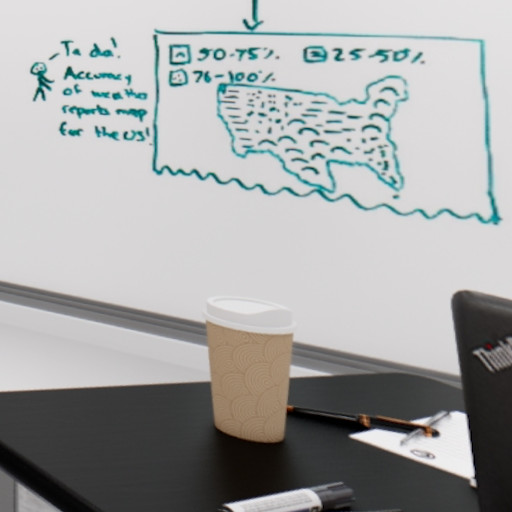 Ta da!
Accuracy
of weather
reports map
for the US!
50-75%. 25-50%.
76-100%.
Think